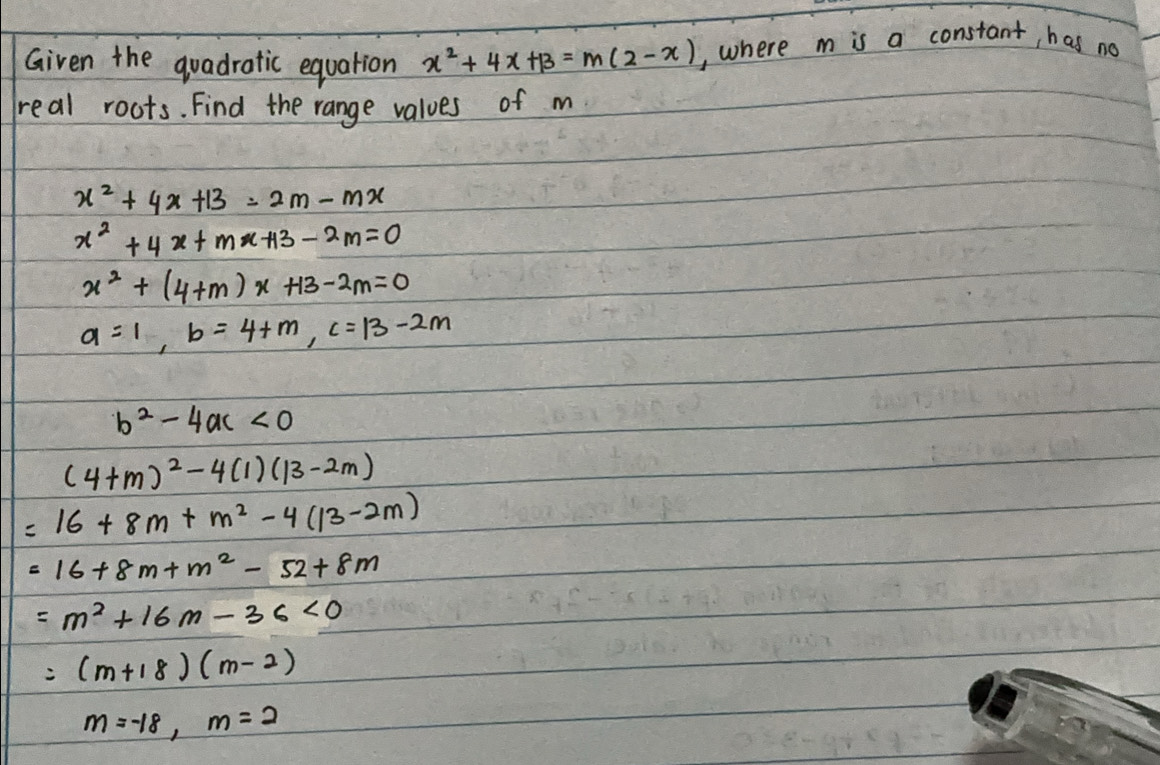 Given the quadratic equation x² + 4x + 13 = m(2 - x), where m is a constant, has no
real roots. Find the range values of m
x² + 4x + 13 = 2m - mx
x² + 4x + mx + 13 - 2m = 0
x² + (4+m)x + 13 - 2m = 0
a = 1, b = 4+m, c = 13 - 2m
b² - 4ac < 0
(4+m)² - 4(1)(13 - 2m)
= 16 + 8m + m² - 4(13 - 2m)
= 16 + 8m + m² - 52 + 8m
= m² + 16m - 36 < 0
= (m+18)(m-2)
m = -18, m = 2